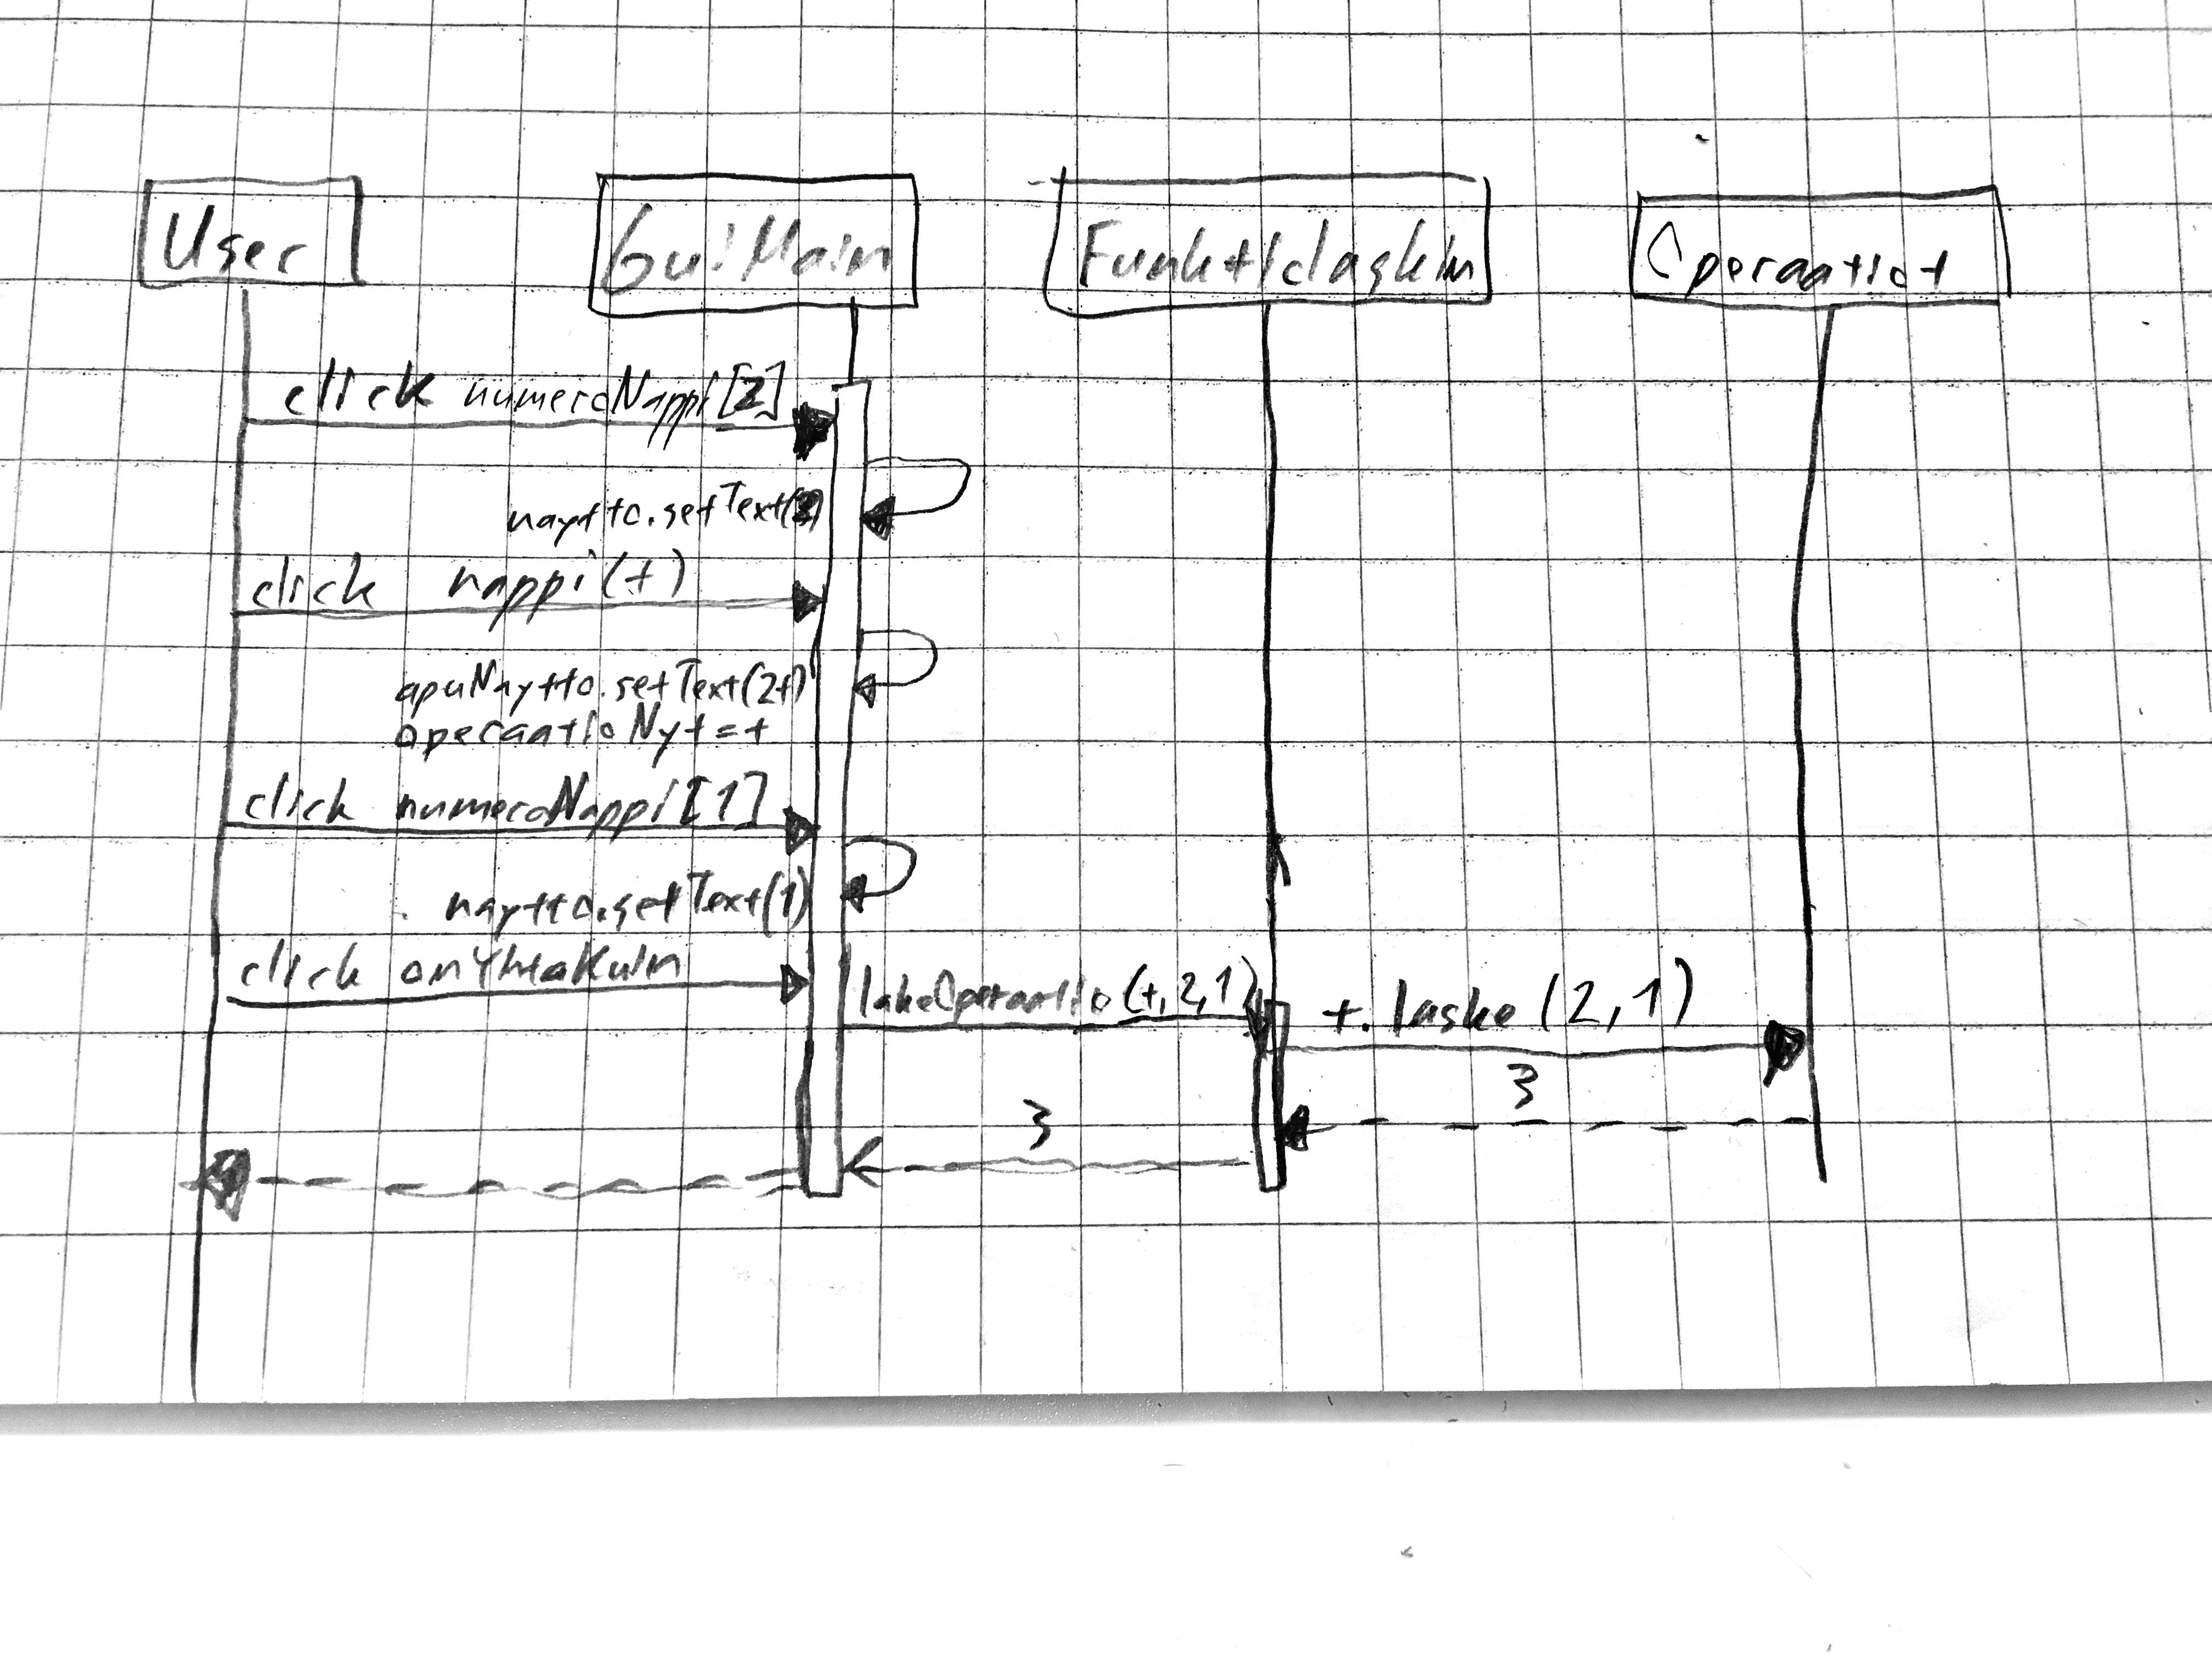 User
GuiMain
Funktiolaskin
Operaatiot
click numeroNappi[2]
naytto.setText(2)
click nappi(+)
apuNaytto.setText(2+)
operaatioNyt=+
click numeroNappi[1]
naytto.setText(1)
click onYhtaKuin
(+,2,1)
+.laske (2,1)
3
3